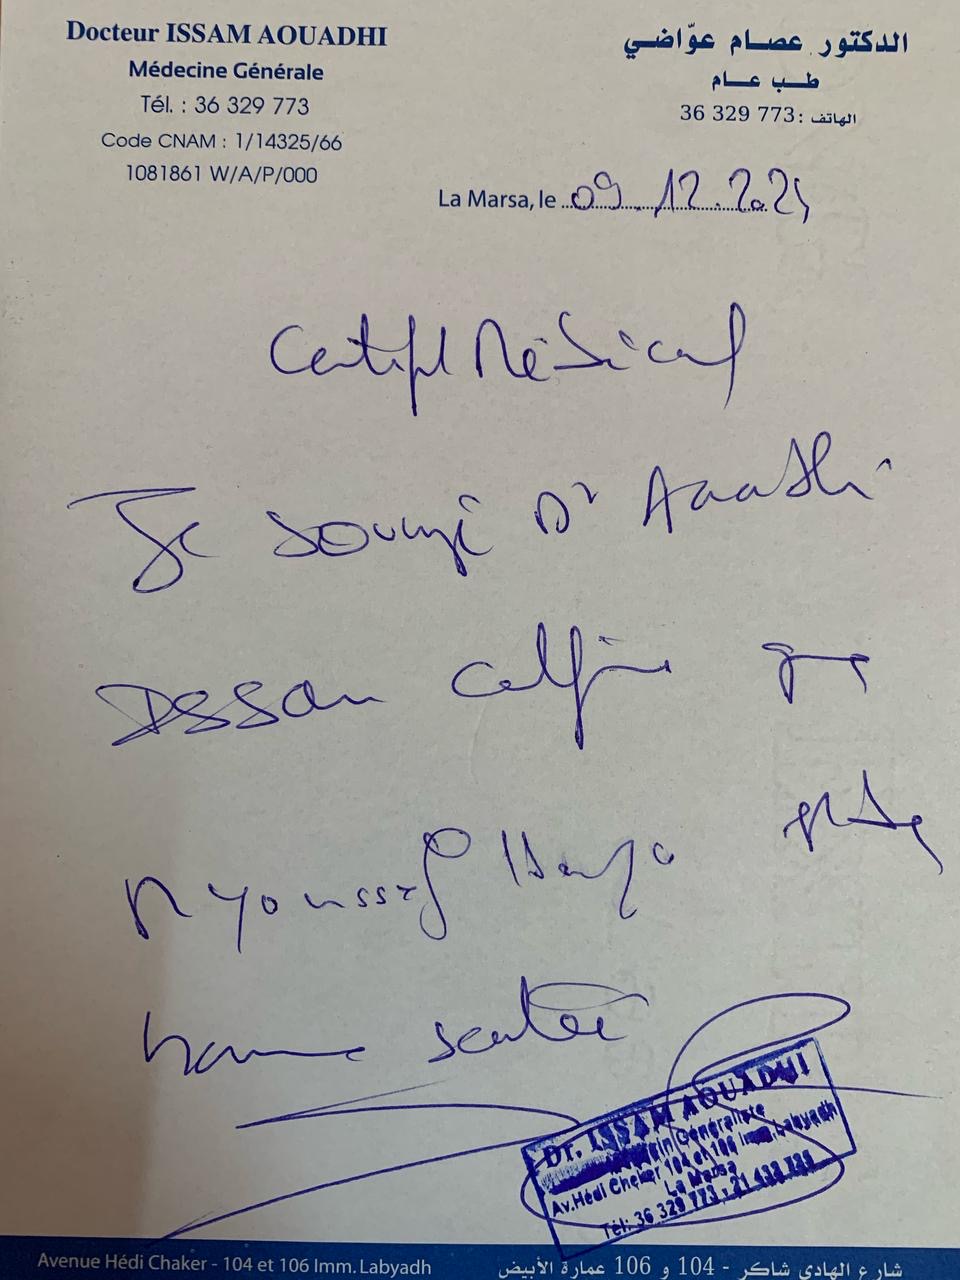 Docteur ISSAM AOUADHI
Médecine Générale
Tél. : 36 329 773
Code CNAM : 1/14325/66
1081861 W/A/P/000
الدكتور عصام عوّاضي
طب عام
الهاتف : 36 329 773
La Marsa, le 09.12.2024
Certift Médical
Je soussigné Dr Aouadhi
Issam certifie que
M Youssef est de
bonne santé
Dr. ISSAM AOUADHI
Médecin Généraliste
Av. Hédi Cheker 104 et 106 Imm. Labyadh
La Marsa
Tél: 36 329 773 - 21 433
Avenue Hédi Chaker - 104 et 106 Imm. Labyadh
شارع الهادي شاكر - 104 و 106 عمارة الأبيض